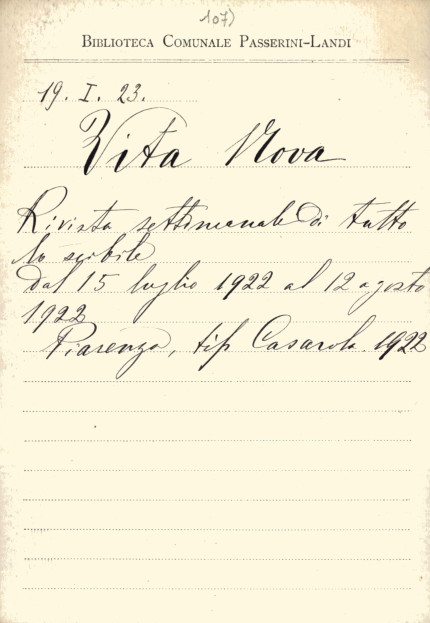 107)
BIBLIOTECA COMUNALE PASSERINI-LANDI
19. I. 23.
Vita Nova
Rivista settimanale di tutto
lo scibile
dal 15 luglio 1922 al 12 agosto
1922
Piacenza, tip. Casarola 1922